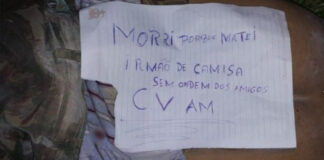 MORRI PORQUE MATEI
IRMÃO DE CAMISA
SEM ORDEM DOS AMIGOS
CV AM